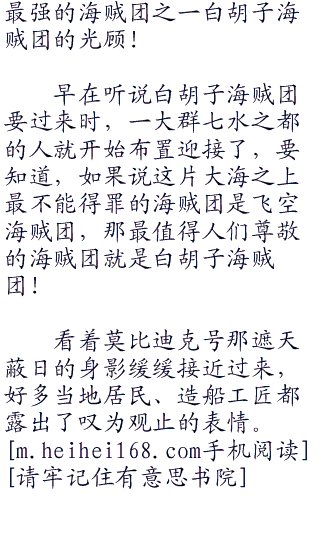 最强的海贼团之一白胡子海
贼团的光顾！
早在听说白胡子海贼团
要过来时，一大群七水之都
的人就开始布置迎接了，要
知道，如果说这片大海之上
最不能得罪的海贼团是飞空
海贼团，那最值得人们尊敬
的海贼团就是白胡子海贼
团！
看着莫比迪克号那遮天
蔽日的身影缓缓接近过来，
好多当地居民、造船工匠都
露出了叹为观止的表情。
[m.heihei168.com手机阅读]
[请牢记住有意思书院]